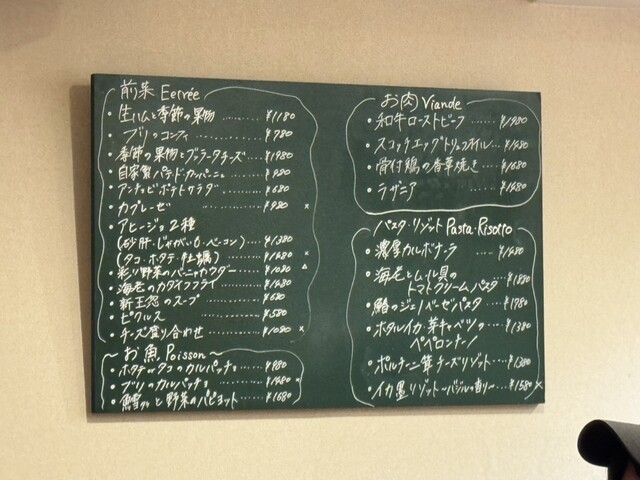 前菜 Eetrée
・生ハムと季節の果物 ……… ¥1180
・ブリのコンフィ ……… ¥780
・季節の果物とブラータチーズ … ¥1980
・自家製パテ・ド・カンパーニュ … ¥980
・アンチョビポテトサラダ …… ¥680
・カプレーゼ …… ¥980 ×
・アヒージョ2種
(砂肝・じゃがいも・ベーコン) … ¥1380
(タコ・ホタテ・牡蠣) …… ¥1480 ×
・彩り野菜のバーニャカウダー …… ¥1080 △
・海老のカダイフフライ …… ¥1480
・新玉葱のスープ …… ¥680
・ピクルス …… ¥580
・チーズ盛り合わせ …… ¥1080 ×
お魚 Poisson
・ホタテとタコのカルパッチョ …… ¥980
・ブリのカルパッチョ …… ¥1480
・鱈と野菜のパピヨット …… ¥1680
お肉 Viande
・和牛ローストビーフ …… ¥1980
・スコッチエッグトリュフオイル … ¥1480
・骨付鶏の香草焼き …… ¥1680
・ラザニア …… ¥1480
パスタ・リゾット Pasta・Risotto
・濃厚カルボナーラ …… ¥1480
・海老とムール貝の
トマトクリームパスタ ¥1880
・鮨のジェノベーゼパスタ … ¥1780
・ホタルイカ・芽キャベツの … ¥1380
ペペロンチーノ
・ポルチーニ茸チーズリゾット … ¥1380
・イカ墨リゾット〜バジルの香り〜 … ¥1580 ×